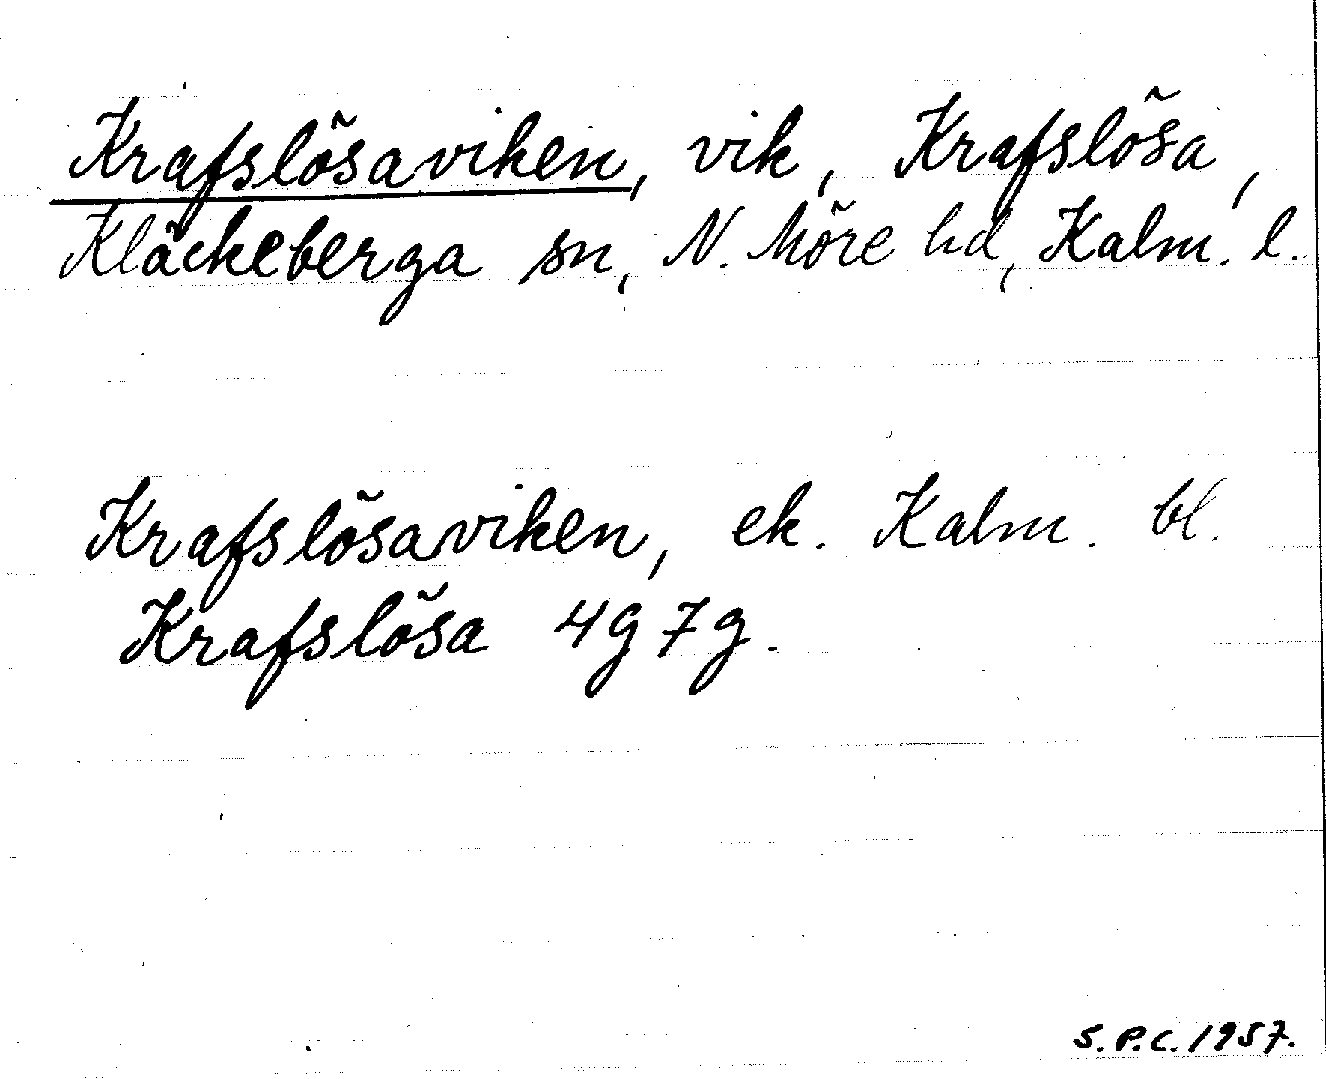 Krafslösaviken, vik, Krafslösa,
Kläckeberga sn, N. Möre hd, Kalm. l.
Krafslösaviken, ek. Kalm. bl.
Krafslösa 4g7g.
S.P.C. 1957.